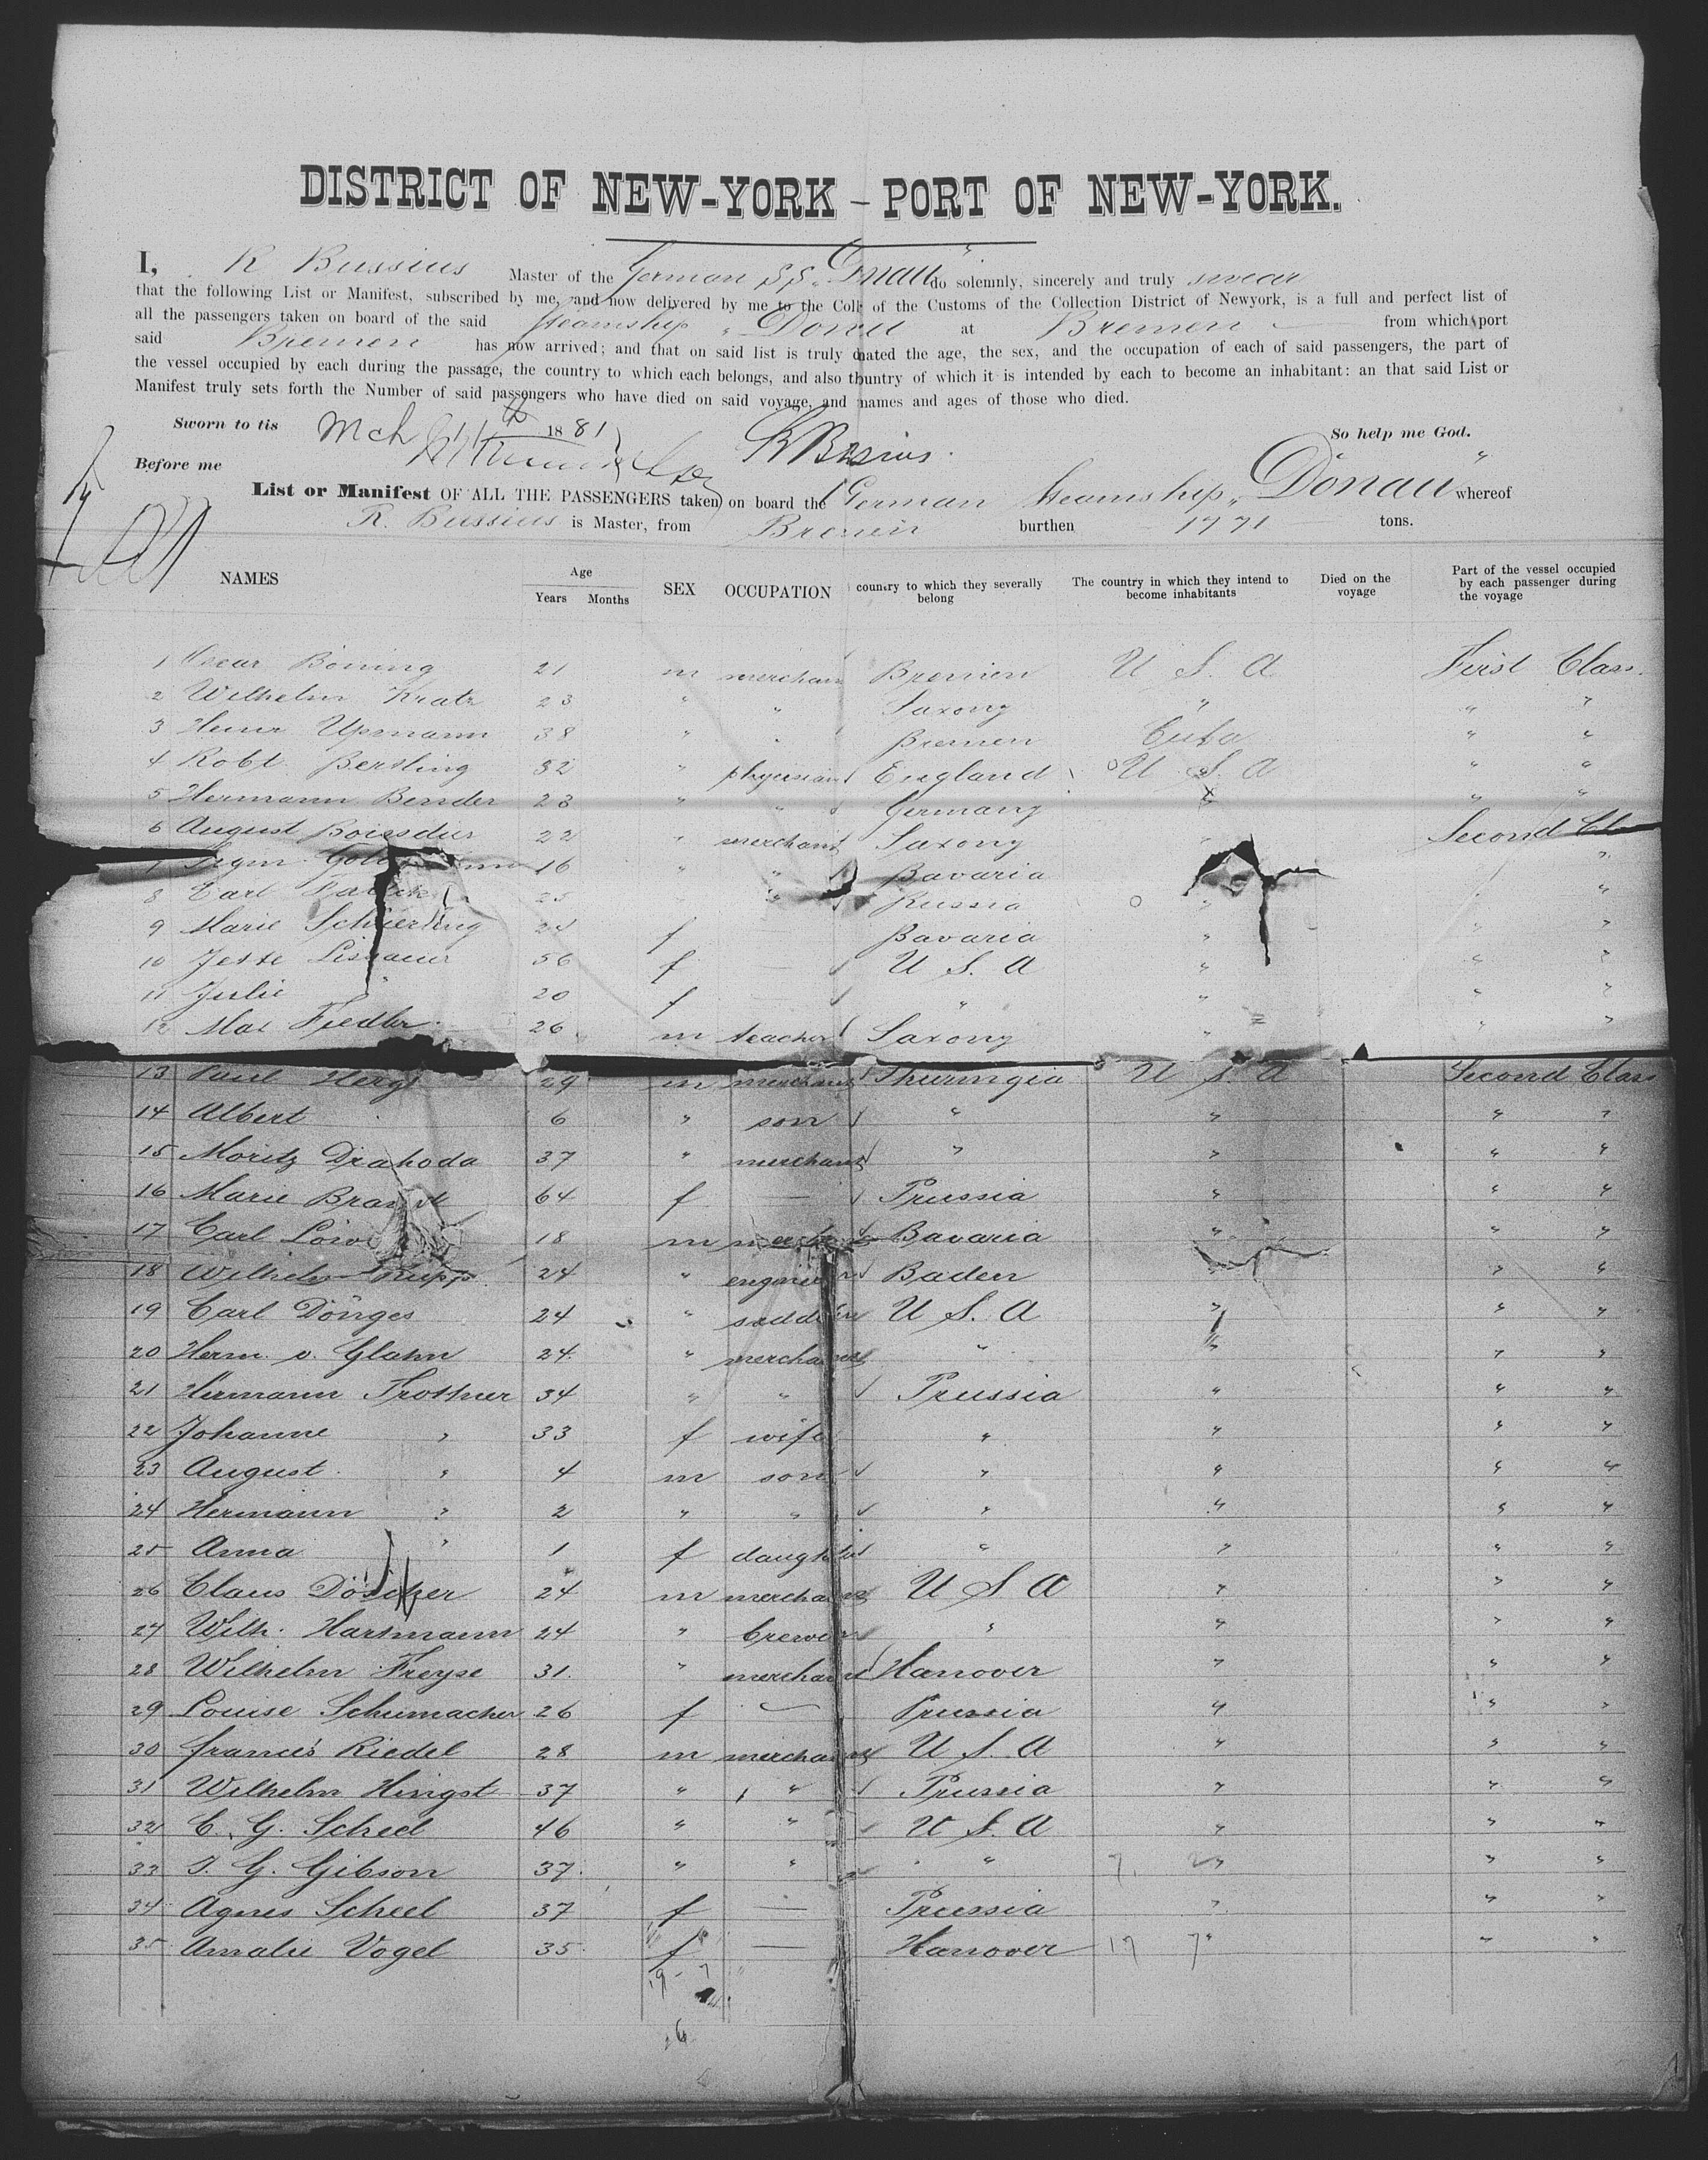 DISTRICT OF NEW-YORK - PORT OF NEW-YORK.
I, R Bussius Master of the German SS. „Donau" do solemnly, sincerely and truly swear
that the following List or Manifest, subscribed by me, and now delivered by me to the Coll of the Customs of the Collection District of Newyork, is a full and perfect list of
all the passengers taken on board of the said Steamship „Donau at Bremen from which port
said Bremen has now arrived; and that on said list is truly mated the age, the sex, and the occupation of each of said passengers, the part of
the vessel occupied by each during the passage, the country to which each belongs, and also thuntry of which it is intended by each to become an inhabitant: an that said List or
Manifest truly sets forth the Number of said passengers who have died on said voyage, and names and ages of those who died.
Sworn to tis Mch 11th 1881 So help me God.
Before me
List or Manifest OF ALL THE PASSENGERS taken on board the German Steamship „Donau" whereof
R. Bussius is Master, from Bremen burthen 1771 tons.
NAMES Age Years Months SEX OCCUPATION counsry to which they severally belong The country in which they intend to become inhabitants Died on the voyage Part of the vessel occupied by each passenger during the voyage
1 Oscar Böning 21 m merchant Bremen U S. A First Class.
2 Wilhelm Kratz 23 " " Saxony " " "
3 Heinr Upmann 38 " " Bremen Cuba " "
4 Robt. Bersling 32 " physician England U S. A " "
5 Hermann Bender 23 " " Germany " " "
6 August 22 " merchant Saxony " Second Cl
7 16 " " Bavaria " "
8 Carl 25 " " Russia " " "
9 Marie Schierling 24 f Bavaria " " "
10 Jette 56 f — U S. A " " "
11 Julie " 20 f " " " "
12 Max Fiedler 26 m teacher Saxony " " "
13 Paul Hergt 29 m merchant Thuringia U S. A Second Class
14 Albert 6 " son " " " "
15 Moritz Drahoda 37 " merchant " " " "
16 Marie Brandt 64 f — Prussia " " "
17 Carl Löwe 18 m merch Bavaria " " "
18 Wilhelm Rupp 24 " engineer Baden " " "
19 Carl Dönges 24 " saddler U S. A " " "
20 Herm. v. Glahn 24. " merchant " " " "
21 Hermann Trothner 34 " " Prussia " " "
22 Johanne " 33 f wife " " " "
23 August " 4 m son " " " "
24 Hermann " 2 " " " " " "
25 Anna " 1 f daughter " " " "
26 Claus Döscher 24 m merchant U S A " " "
27 Wilh. Hartmann 24 " brewer " " " "
28 Wilhelm Freyse 31. " merchant Hanover " " "
29 Louise Schumacher 26 f — Prussia " " "
30 Francis Riedel 28 m merchant U S. A " " "
31 Wilhelm Hingst 37 " " Prussia " " "
32 C. G. Scheel 46 " " U S. A " " "
33 G. Gibson 37. " " " " " "
34 Agnes Scheel 37 f — Prussia " " "
35 Amalie Vogel 35. f — Hanover 17 7 " "
19 - 7